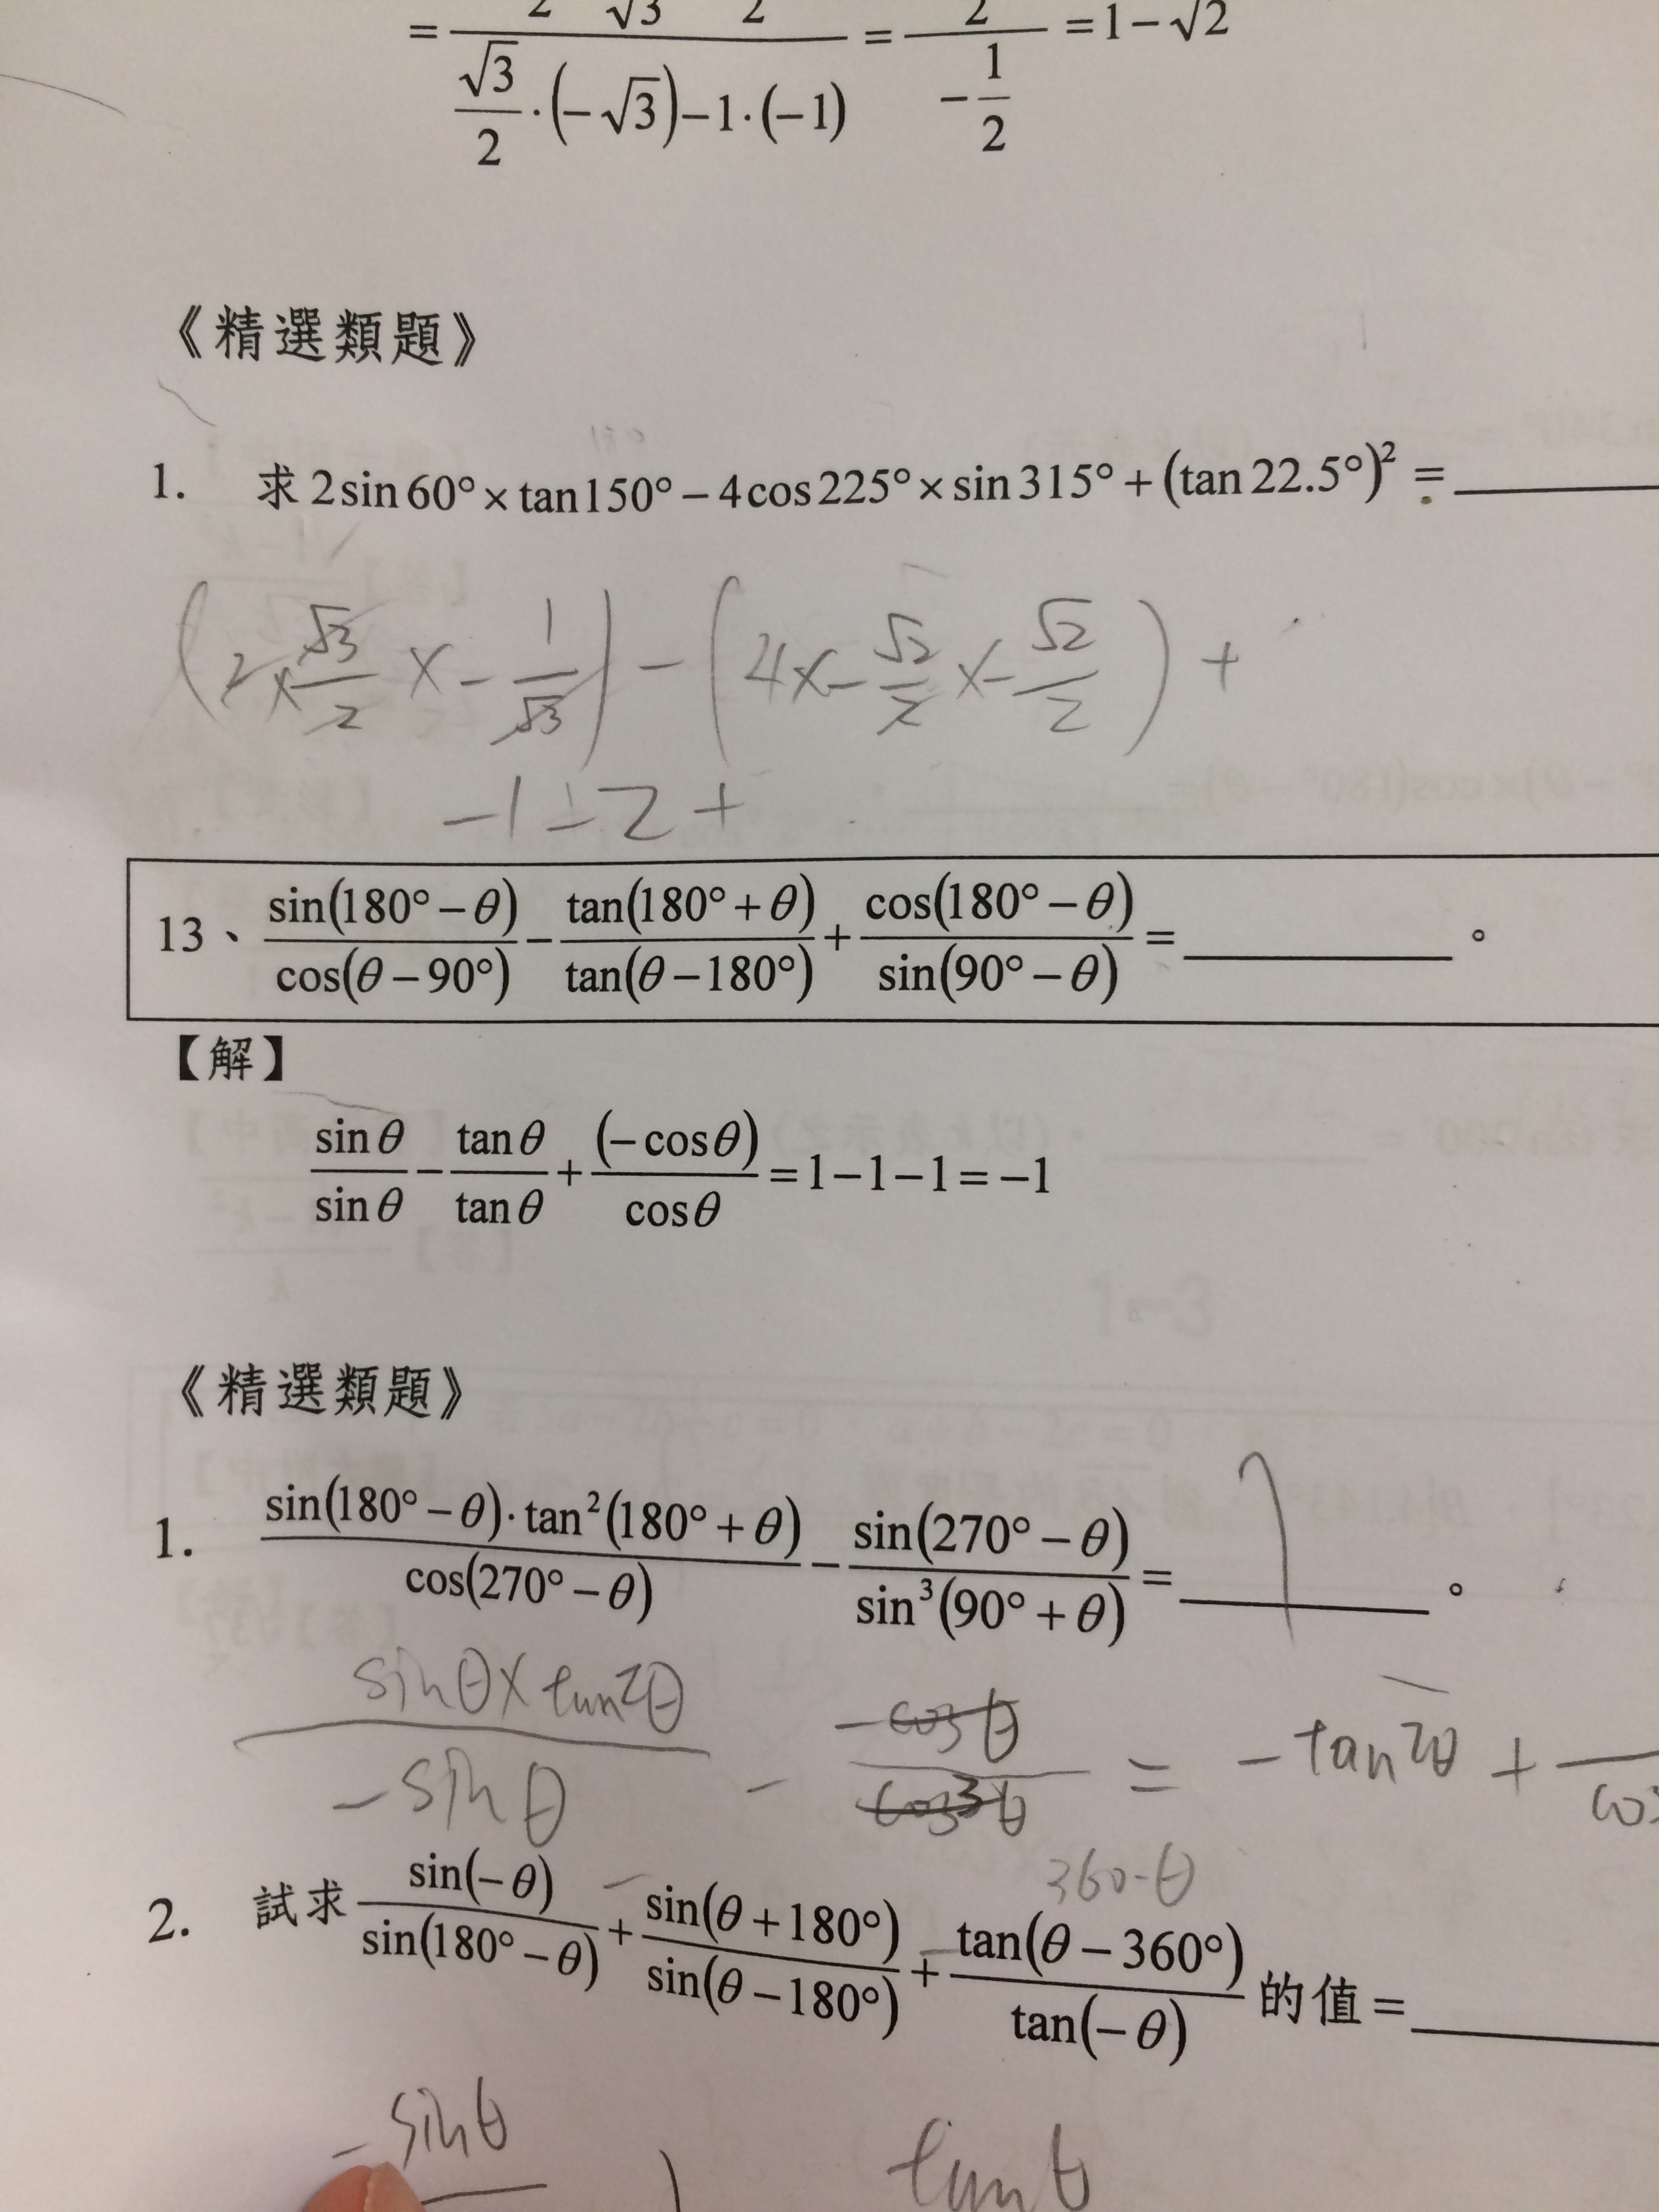 = (√3/2·(−√3)−1·(−1)) = 2/(−1/2) = 1−√2
《精選類題》
1. 求 2sin60°×tan150°−4cos225°×sin315°+(tan22.5°)² = ______
(2×√3/2 ×− 1/√3) − (4×− √2/2 ×− √2/2) +
−1−2+
13、sin(180°−θ)/cos(θ−90°) − tan(180°+θ)/tan(θ−180°) + cos(180°−θ)/sin(90°−θ) = ______。
【解】
sinθ/sinθ − tanθ/tanθ + (−cosθ)/cosθ = 1−1−1 = −1
《精選類題》
1. sin(180°−θ)·tan²(180°+θ)/cos(270°−θ) − sin(270°−θ)/sin³(90°+θ) = 1。
sinθ×tan2θ/−sinθ − −cosθ/cos3θ = −tan2θ +
360-θ
2. 試求 sin(−θ)/sin(180°−θ) + sin(θ+180°)/sin(θ−180°) + tan(θ−360°)/tan(−θ) 的值 = ______
−sinθ
tanθ